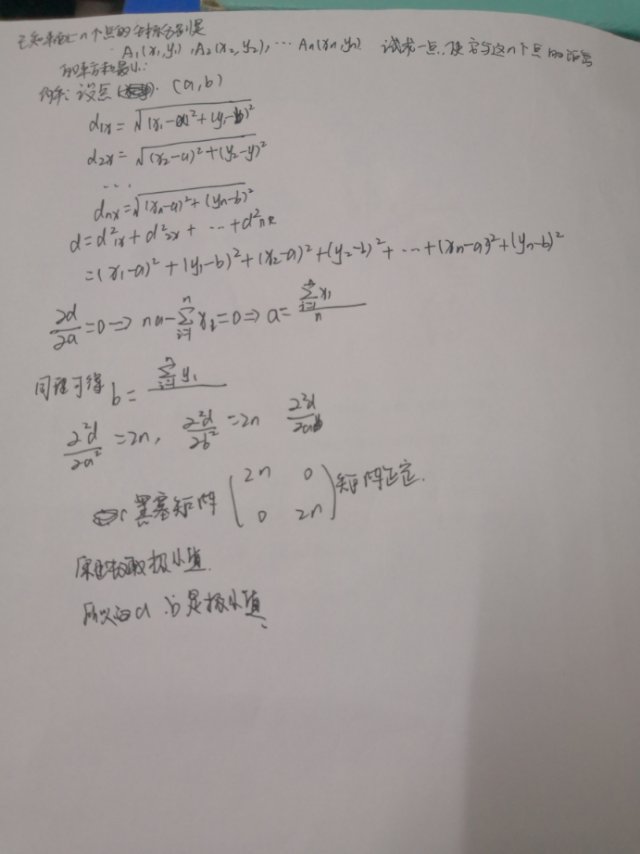 已知平面上n个点的坐标分别是
A₁(x₁,y₁),A₂(x₂,y₂),…An(xn,yn) 试求一点,使它与这n个点的距离
的平方和最小.
解: 设点 (a,b)
d₁ₓ=√((x₁-a)²+(y₁-b)²)
d₂ₓ=√((x₂-a)²+(y₂-y)²)
...
dₙₓ=√((xn-a)²+(yn-b)²)
d=d²₁ₓ+d²₂ₓ+…+d²ₙₓ
=(x₁-a)²+(y₁-b)²+(x₂-a)²+(y₂-b)²+…+(xn-a)²+(yn-b)²
∂d/∂a=0=>na-∑ⁿᵢ₌₁xᵢ=0=>a=∑ⁿᵢ₌₁x₁/n
同理可得 b=∑ⁿᵢ₌₁y₁
∂²d/∂a²=2n, ∂²d/∂b²=2n ∂²d/∂ab
黑塞矩阵(2n 0
0 2n)矩阵正定.
取极小值.
所以 a b是极小值.